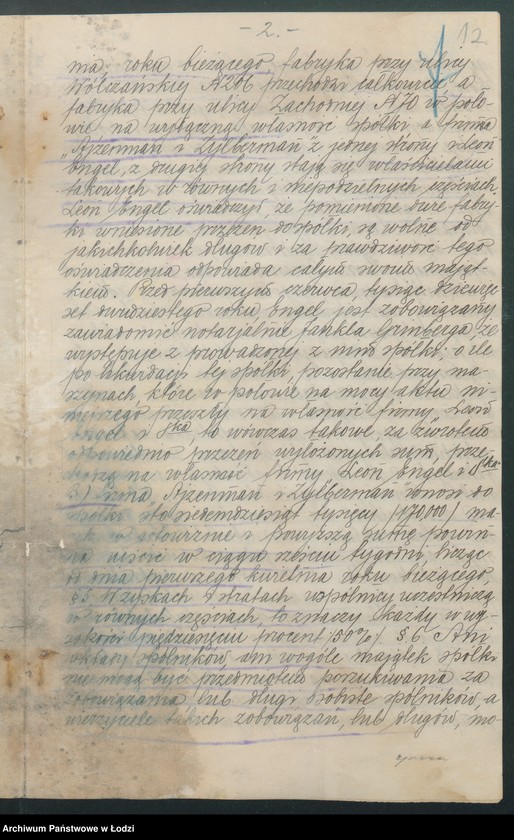 - 2. -
12
nia roku bieżącego fabryka przy ulicy
Wólczańskiej N 206 przechodzi całkowicie, a
fabryka przy ulicy Zachodniej N 70 w poło-
wie na wyłączną własność spółki, a firma
"Ajzenman i Zylberman" z jednej strony i Leon
Engel, z drugiej strony stają się właścicielami
takowych w równych i niepodzielnych częściach.
Leon Engel oświadczył, że pomienione dwie fabry-
ki wniesione przezeń do spółki, są wolne od
jakichkolwiek długów i za prawdziwość tego
oświadczenia odpowiada całym swoim mająt-
kiem. Przed pierwszym czerwca, tysiąc dziewię-
set dwudziestego roku, Engel jest zobowiązany
zawiadomić notarjalnie Jankla Grinberga, że
występuje z prowadzonej z nim spółki; o ile
po likwidacji tej spółki, pozostanie przy ma-
szynach, które w połowie na mocy aktu ni-
niejszego przeszły na własność firmy "Leon
Engel i S-ka", to wówczas takowe, za zwrotem
odpowiednio przezeń wyłożonych sum, prze-
chodzą na własność firmy Leon Engel i S-ka.
b) firma Ajzenman i Zylberman wnosi do
spółki sto siedemdziesiąt tysięcy /170,000/ ma-
rek w gotowiźnie i powyższą sumę powin-
na uiścić w ciągu sześciu tygodni, licząc
od dnia pierwszego kwietnia roku bieżącego,
§ 5 W zyskach i stratach wspólnicy uczestniczą
w równych częściach, to znaczy każdy w wy-
sokości pięćdziesięciu procent /50%/. § 6. Ani
wkłady spólników, ani wogóle majątek spółki
nie mogą być przedmiotem poszukiwania za
zobowiązania lub długi osobiste spólników, a
wierzyciele takich zobowiązań, lub długów, mo-
Archiwum Państwowe w Łodzi